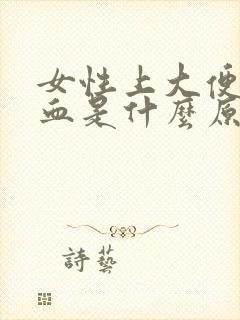 女性上大便
血是什麼原
詩藝